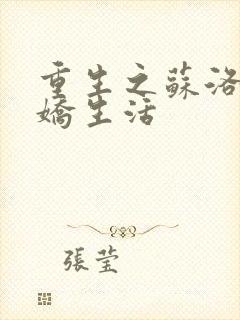 重生之蘇洛
嬌生活
張瑩